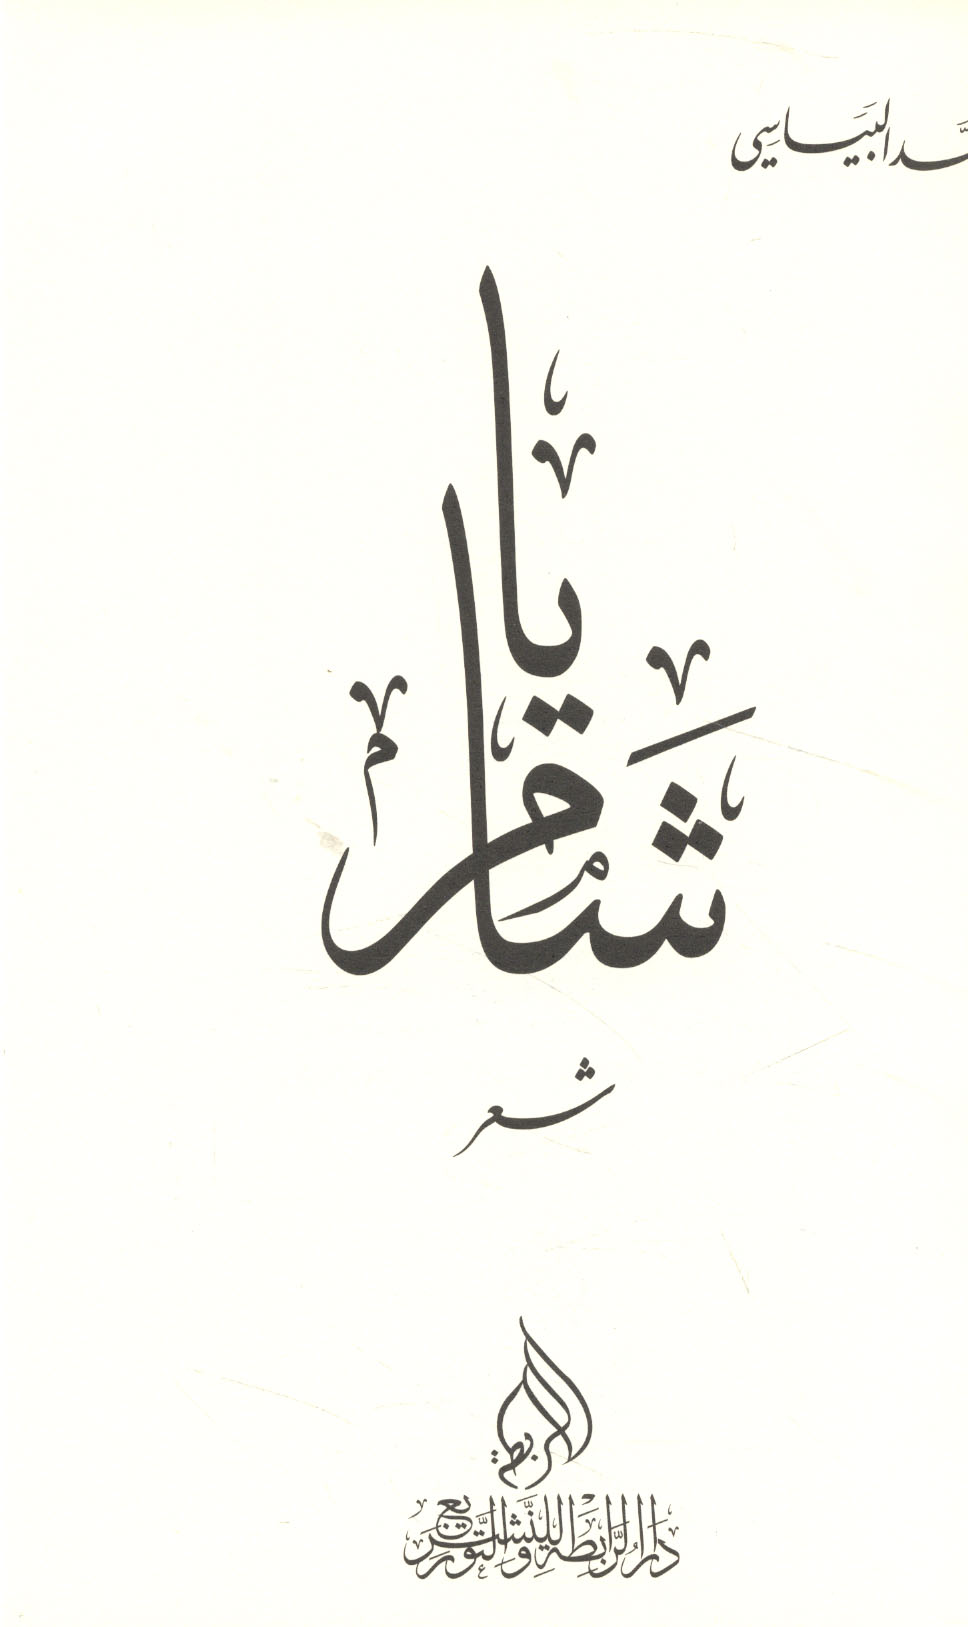 ـمَّد البَيَاسِي
يا
شام
شعر
الرابطة
دَارُ الرَّابِطَةِ لِلنَّشْرِ وَالتَّوْزِيعِ